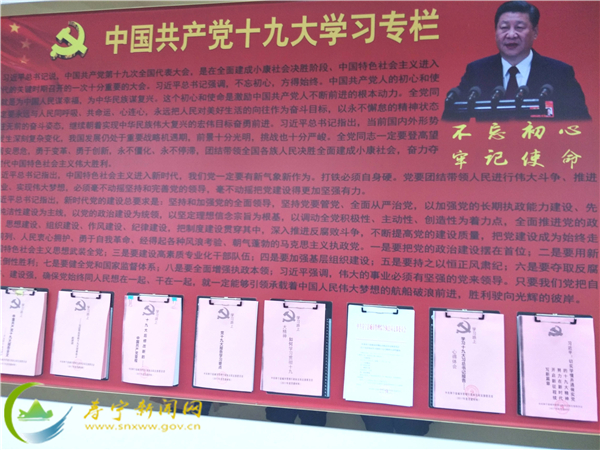 中国共产党十九大学习专栏
不忘初心
牢记使命
习近平总书记说，中国共产党第十九次全国代表大会，是在全面建成小康社会决胜阶段、中国特色社会主义进入
时代的关键时期召开的一次十分重要的大会。习近平强调，不忘初心，方得始终。中国共产党人的初心和使
就是为中国人民谋幸福，为中华民族谋复兴。这个初心和使命是激励中国共产党人不断前进的根本动力。全党同
要永远与人民同呼吸、共命运、心连心，永远把人民对美好生活的向往作为奋斗目标，以永不懈怠的精神状态
往无前的奋斗姿态，继续朝着实现中华民族伟大复兴的宏伟目标奋勇前进。习近平总书记指出，当前国内外形势
发生深刻复杂变化，我国发展仍处于重要战略机遇期，前景十分光明，挑战也十分严峻。全党同志一定要登高望
安思危，勇于变革、勇于创新，永不僵化、永不停滞，团结带领全国各族人民决胜全面建成小康社会，奋力夺
时代中国特色社会主义伟大胜利。
近平总书记指出，中国特色社会主义进入新时代，我们党一定要有新气象新作为。打铁必须自身硬。党要团结带领人民进行伟大斗争、推进
业、实现伟大梦想，必须毫不动摇坚持和完善党的领导，毫不动摇把党建设得更加坚强有力。
近平总书记指出，新时代党的建设总要求是：坚持和加强党的全面领导，坚持党要管党、全面从严治党，以加强党的长期执政能力建设、先
纯洁性建设为主线，以党的政治建设为统领，以坚定理想信念宗旨为根基，以调动全党积极性、主动性、创造性为着力点，全面推进党的政
思想建设、组织建设、作风建设、纪律建设，把制度建设贯穿其中，深入推进反腐败斗争，不断提高党的建设质量，把党建设成为始终走
前列、人民衷心拥护、勇于自我革命、经得起各种风浪考验、朝气蓬勃的马克思主义执政党。一是要把党的政治建设摆在首位；二要用新
特色社会主义思想武装全党；三是要建设高素质专业化干部队伍；四是要加强基层组织建设；五是要持之以恒正风肃纪；六是要夺取反腐
倒性胜利；七是要健全党和国家监督体系；八是要全面增强执政本领；习近平强调，伟大的事业必须有坚强的党来领导。只要我们党把自
建设强，确保党始终同人民想在一起、干在一起，就一定能够引领承载着中国人民伟大梦想的航船破浪前进，胜利驶向光辉的彼岸。
心得体会
寿宁新闻网
www.snxww.gov.cn